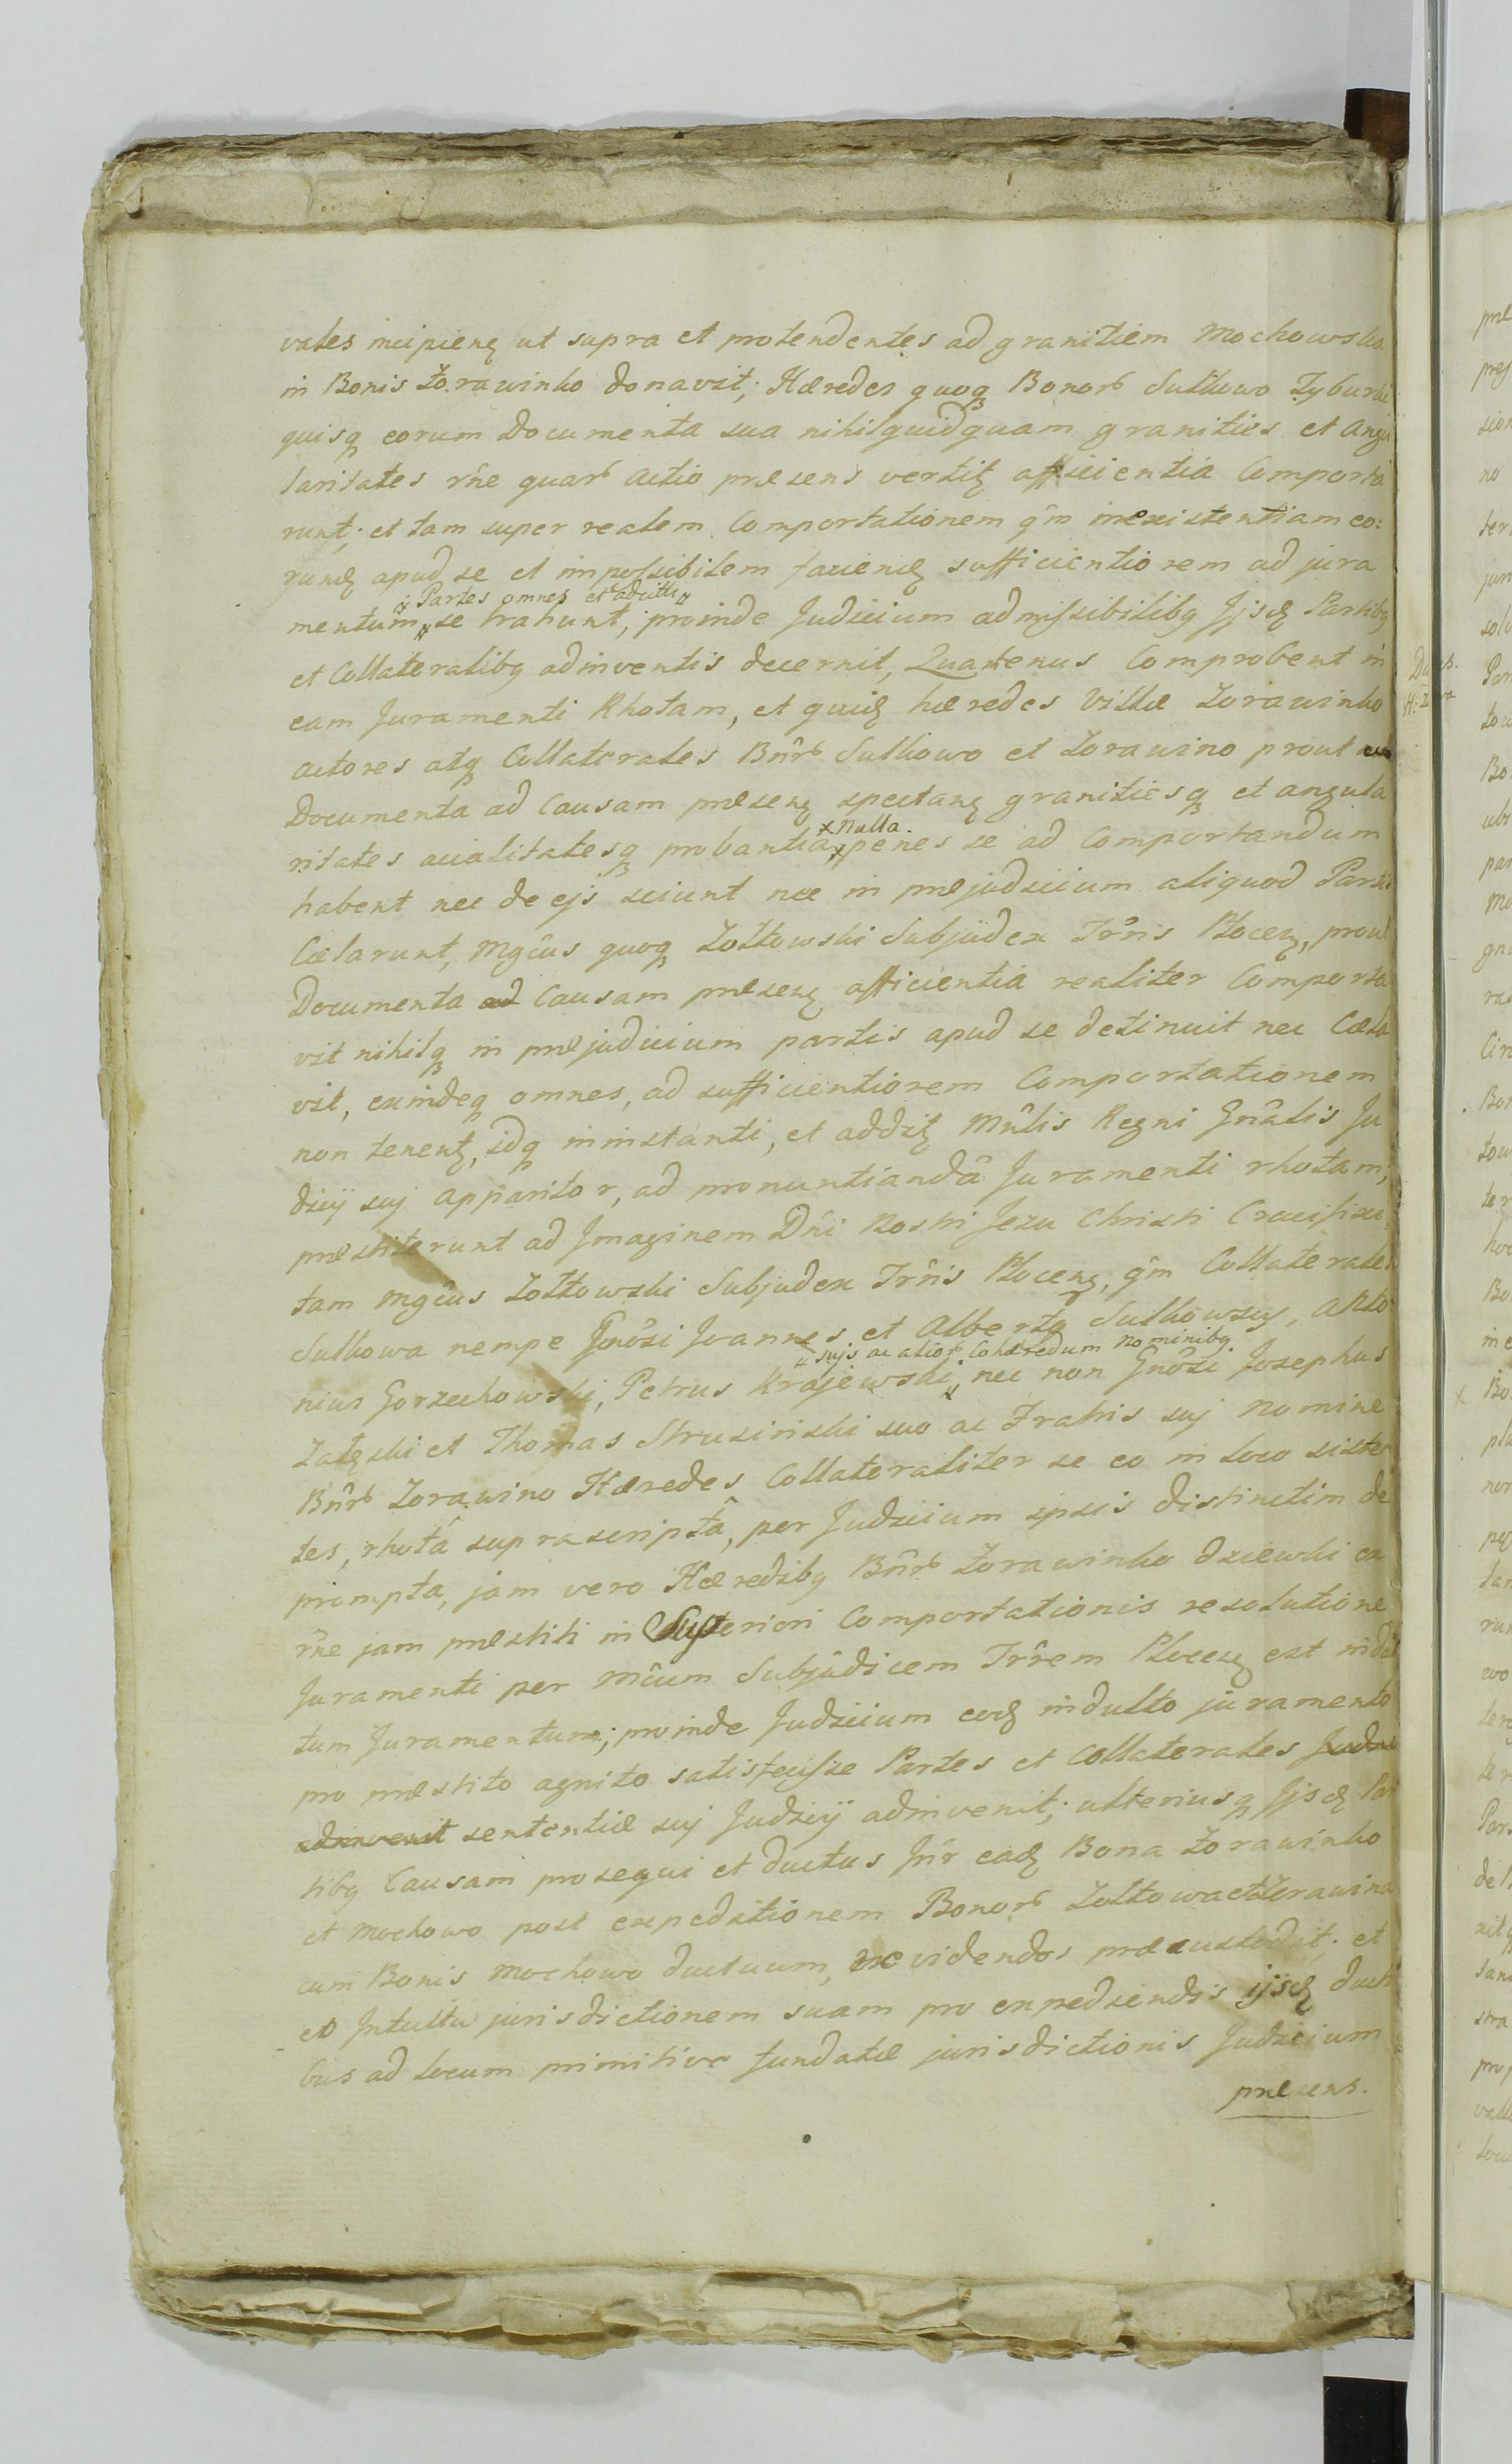 vales incipieng ut supra et protendentes ad granitiem Mochowska
in Bonis Żorawinko donavit; Hæredes quoqꝫ Bonorꝫ Sulkowo
quisqꝫ eorum Documenta sua nihilquidquam granities et Angu
laritates rñe quarꝫ actio præsens vertitꝫ afficientia Comporta
runt; et tam super realem Comportationem qm̃ inexistentiam eo:
rundꝫ apud se et impossibilem faciendꝫ sufficientiorem ad jura
Partes omnes et
mentum se trahunt; proinde Judicium admissibilibꝫ Ijsdꝫ Partibꝫ
et Collateralibꝫ adinventis decernit, Quatenus Comprobent in
eam Juramenti Rhotam, et quidꝫ hæredes Villæ Żorawinko
actores atqꝫ Collaterales Bnrꝫ Sulkowo et Żorawino prout
Documenta ad Causam præseng spectang granitiesqꝫ et angula
x Nulla.
ritates acialitatesqꝫ probantia x penes se ad Comportandum
habent nec de ejs sciunt nec in præjudicium aliquod Partis
Cælarunt, Mgcus quoqꝫ Żółtowski Subjudex Trr̃is Ploceng, prout
Documenta ad Causam præseng afficientia realiter Comporta
vit nihilqꝫ in præjudicium partis apud se detinuit nec Cæla
vit, exindeqꝫ omnes, ad sufficientiorem Comportationem
non tenentꝫ, idqꝫ ininstanti, et additꝫ Mnlis Regni Gñalis Ju
dicij suj apparitor, ad pronuntiandã Juramenti rhotam;
præstiterunt ad Imaginem Dñi Nostri Jezu Christi Crucifixi,
tam Mgcus Żółtowski Subjudex Trr̃is Ploceng, qm̃ Collaterales
Sulkowa nempe Gñosi Joannes et Albertꝫ Sulkowscy, Anto
sujs ac aliorꝫ Cohæredum nominibꝫ
nius Gorzechowski, Petrus Krajewski, nec non Gñosi Josephus
Załęski et Thomas Strusinski suo ac Fratris suj nomine
Bnrꝫ Żorawino Hæredes Collateraliter se eo in loco sisten
tes, rhotâ suprascriptâ, per Judicium ipsis distinctim de
prompta, jam vero Hæredibꝫ Bnrꝫ Żorawinko Dziewki ex
rñe jam præstiti in Superiori Comportationis resolutione
Juramenti per Mcum Subjudicem Trr̃em Ploceng est indul
tum Juramentum; proinde Judicium eodꝫ indulto juramento
pro præstito agnito satisfecisse Partes et Collaterales
adinvenit sententiæ suj Judicij adinvenit; ulteriusqꝫ Ijsdꝫ Par
tibꝫ Causam prosequi et ductus Intr eadꝫ Bona Żorawinko
et Mochowo post expeditionem Bonorꝫ Żółtowa et Żorawina
cum Bonis Mochowo ductuum, videndos præcustodit; et
eo Intuitu jurisdictionem suam pro expediendis ijsdꝫ ducti
bus ad locum primitive fundatæ jurisdictionis Judicium
præsens.